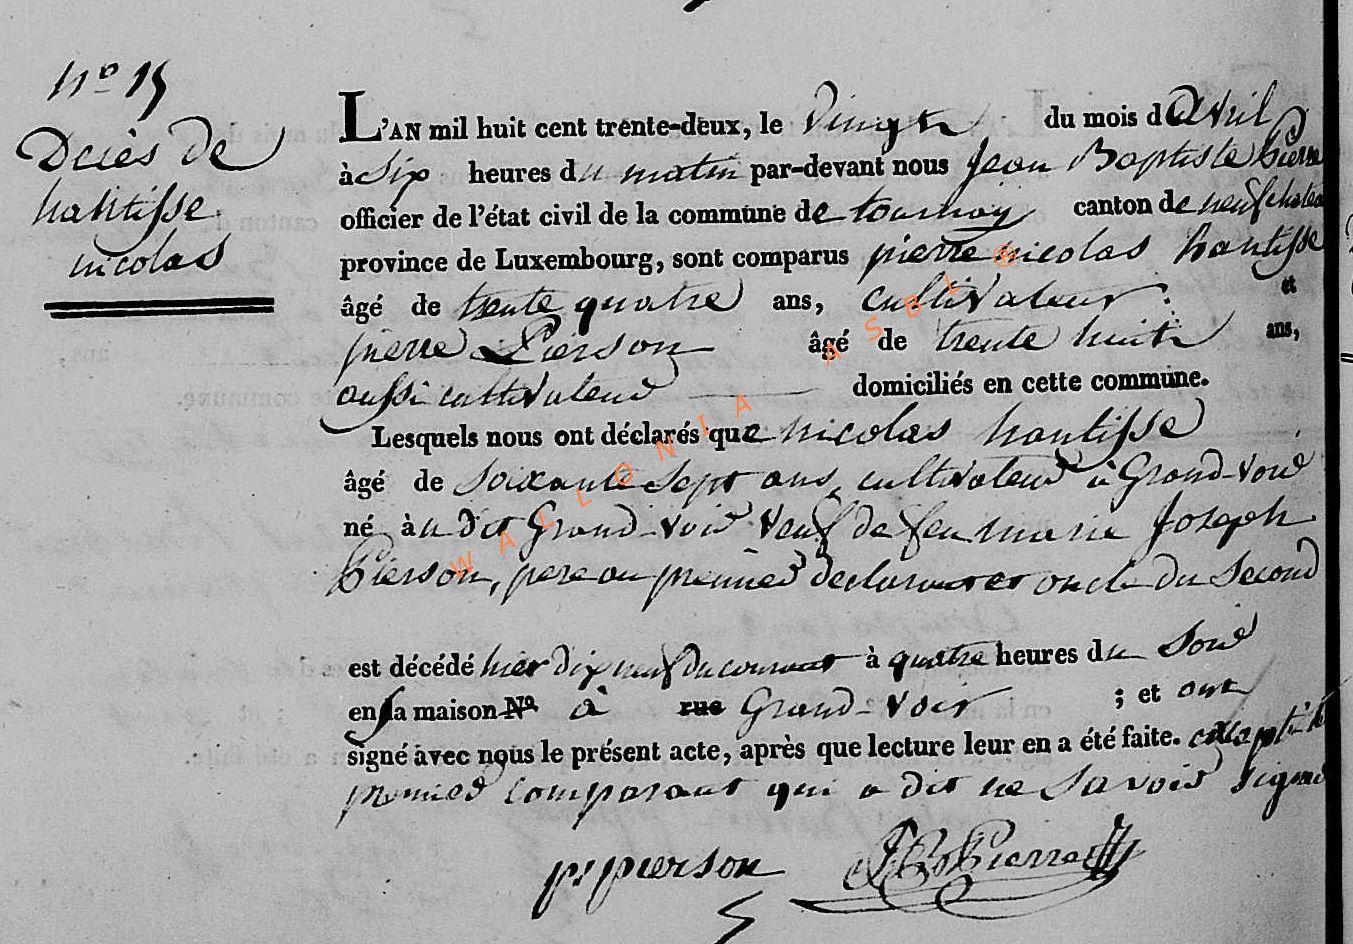 n° 15
Décès de
hautisse
nicolas
L'AN mil huit cent trente-deux, le vingt du mois d'avril
à six heures du matin par-devant nous Jean Baptiste Pierre
officier de l'état civil de la commune de tournay canton de neufchateau
province de Luxembourg, sont comparus pierre nicolas hautisse
âgé de trente quatre ans, cultivateur et
pierre Pierson âgé de trente huit ans,
aussi cultivateur domiciliés en cette commune.
Lesquels nous ont déclarés que nicolas hautisse
âgé de soixante sept ans, cultivateur à Grand-voir
né à u dit Grand-voir veuf de feu marie Joseph
Pierson, pere au premier declarant et oncle du second
est décédé hier dix neuf du courant à quatre heures du soir
en sa maison N° à rue Grand-voir ; et ont
signé avec nous le présent acte, après que lecture leur en a été faite. excepté le
premier comparant qui a dit ne savoir signer
pr pierson JBPierre
WALLONIA ASBL ©